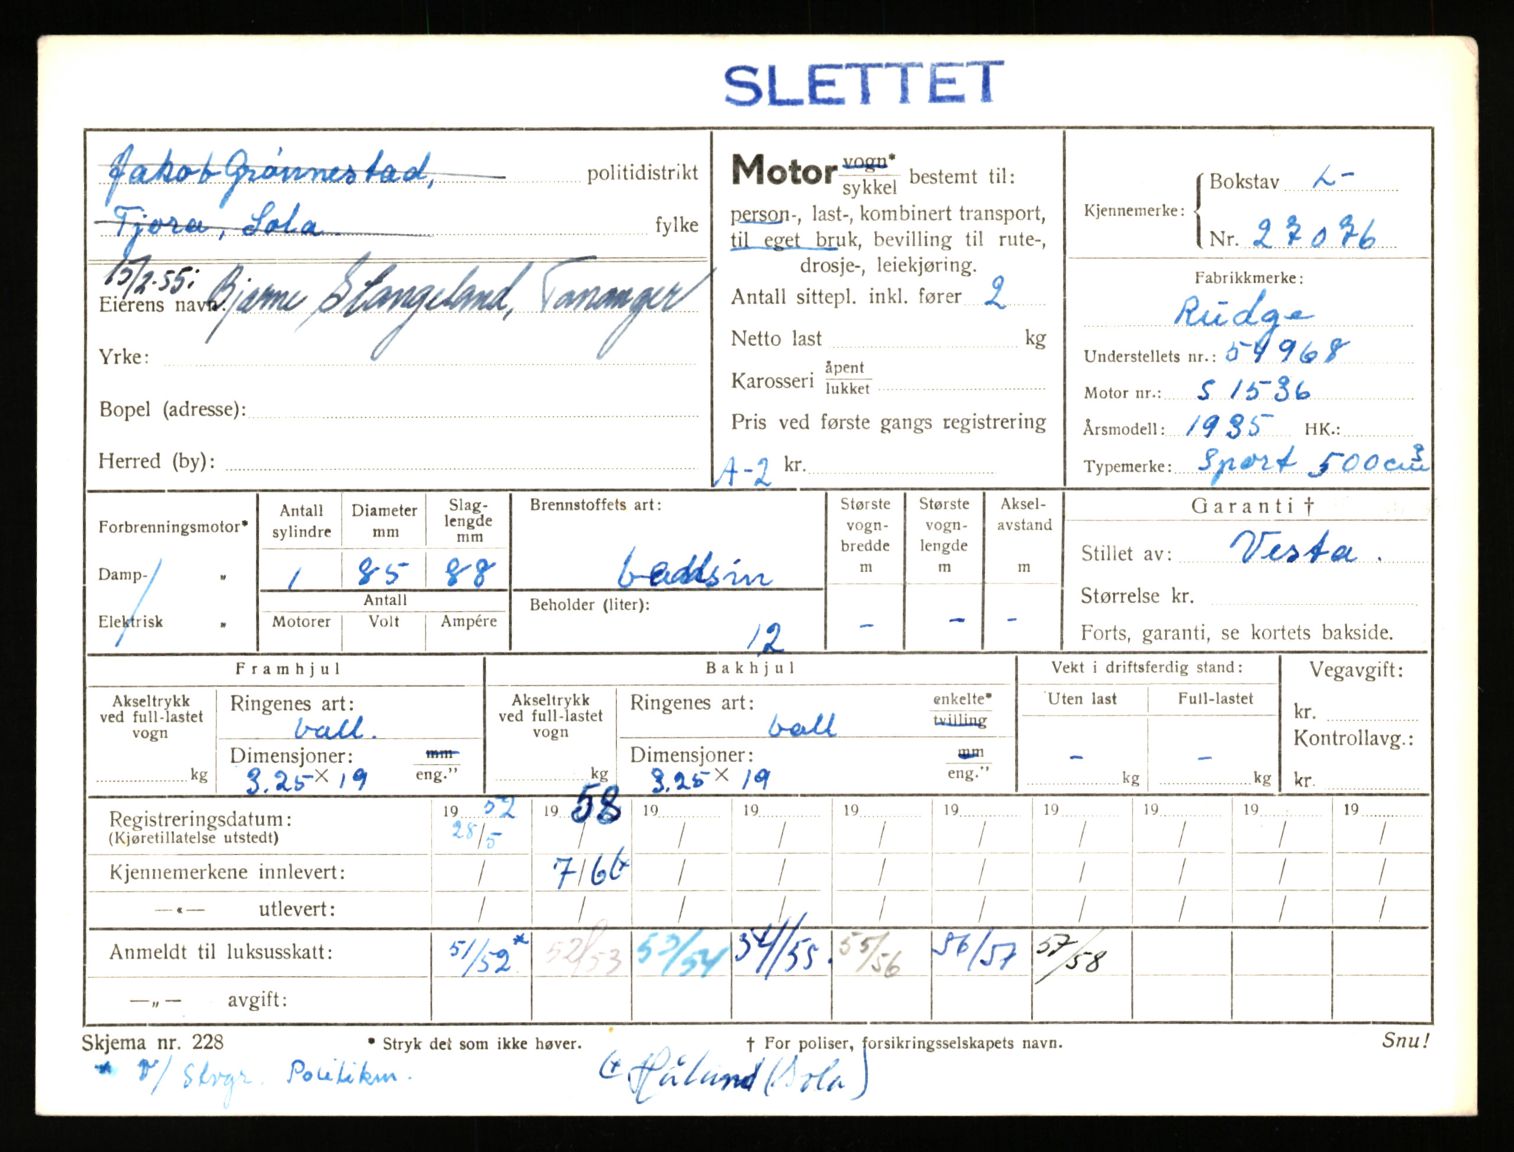 SLETTET
Jakob Grønnestad, politidistrikt
Tjora, Sola fylke
15/2-55:
Eierens navn: Bjarne Stangeland, Tananger
Yrke:
Bopel (adresse):
Herred (by):
Motor vogn* sykkel bestemt til:
person-, last-, kombinert transport,
til eget bruk, bevilling til rute-,
drosje-, leiekjøring.
Antall sittepl. inkl. fører 2
Netto last kg
Karosseri åpent lukket
Pris ved første gangs registrering
A-2 kr.
Kjennemerke: Bokstav L-
Nr. 27076
Fabrikkmerke:
Rudge
Understellets nr.: 54968
Motor nr.: S 1536
Årsmodell: 1935 HK.:
Typemerke: Sport 500 cm3
Forbrenningsmotor*
Damp- „
Elektrisk „
Antall sylindre 1
Diameter mm 85
Slag-lengde mm 88
Antall
Motorer Volt Ampére
Brennstoffets art:
Beholder (liter):
12
Største vogn-bredde m -
Største vogn-lengde m -
Aksel-avstand m -
Garanti †
Stillet av: Vesta.
Størrelse kr.
Forts, garanti, se kortets bakside.
Framhjul
Akseltrykk ved full-lastet vogn kg
Ringenes art:
ball.
Dimensjoner: mm
3.25 x 19 eng."
Bakhjul
Akseltrykk ved full-lastet vogn kg
Ringenes art: enkelte*
ball tvilling
Dimensjoner: mm
3.25 x 19 eng."
Vekt i driftsferdig stand:
Uten last Full-lastet
- -
kg kg
Vegavgift:
kr.
Kontrollavg.:
kr.
Registreringsdatum: 19 52 19 58 19 19 19 19 19 19 19 19
(Kjøretillatelse utstedt) 28/5 / / / / / / / / /
Kjennemerkene innlevert: / 7/6 / / / / / / / /
—«— utlevert: / / / / / / / / / /
Anmeldt til luksusskatt: 51/52* 52/53 53/54 54/55. 55/56 56/57 57/58
—„— avgift:
Skjema nr. 228 * Stryk det som ikke høver. † For poliser, forsikringsselskapets navn. Snu!
* v/ Stvgr. Politikm. Håland (Sola)